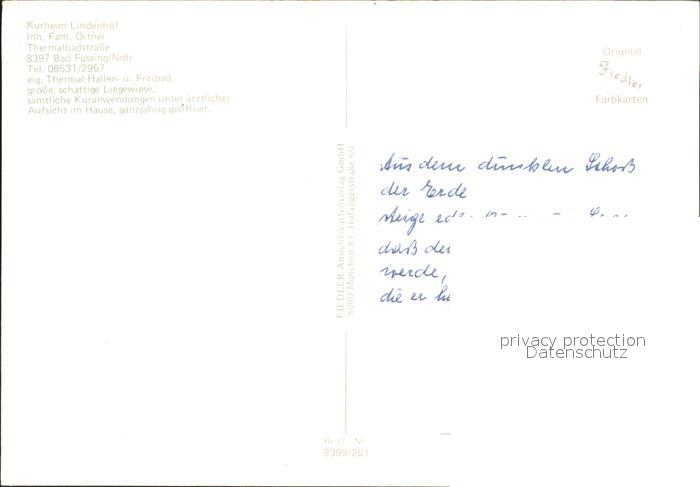 Kurheim Lindenhof
Inh. Fam. Ortner
Thermalbadstraße
8397 Bad Füssing/Ndb.
Tel. 08531/2957
eig. Thermal-Hallen- u. Freibad,
große, schattige Liegewiese,
sämtliche Kuranwendungen unter ärztlicher
Aufsicht im Hause, ganzjährig geöffnet.
FIEDLER Ansichtskartenverlag GmbH
8000 München 83, Hofangerstraße 60
Best. Nr.
8399/251
Original
Fiedler
Farbkarten
Aus dem dunklen Schoß
der Erde
steige
daß der
werde,
die er
privacy protection
Datenschutz